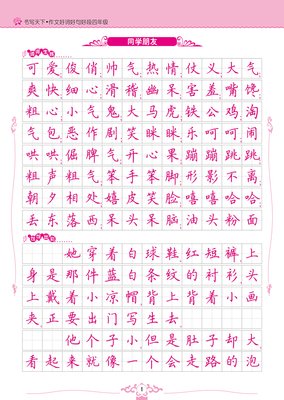 书写天下•作文好词好句好段四年级
同学朋友
可爱俊俏帅气热情仗义大气
爽快细心滑稽幽默害羞嘴馋
粗心小气鬼大马虎铁公鸡淘
气包恶作剧笑眯眯乐呵呵闹
哄哄倔脾气开心果蹦蹦跳跳
粗声粗气笨手笨脚形影不离
朝夕相处嬉皮笑脸嘻嘻哈哈
丢东落西呆头呆脑油头粉面
她穿着白球鞋红短裤上
身是那件蓝白条纹的衬衫头
上戴着小凉帽背上背着小画
夹正要出门写生去
他个子小但是肚子却大
看起来就像一个会走路的泡
1